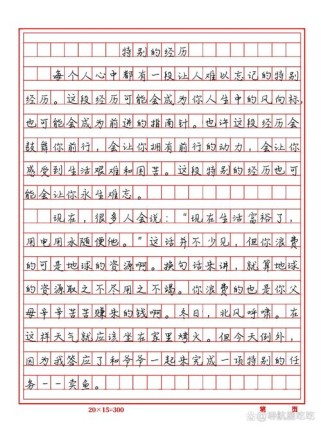 特别的经历
每个人心中都有一段让人难以忘记的特别
经历。这段经历可能会成为你人生中的风向标,
也可能会成为前进的指南针。也许这段经历会
鼓舞你前行,会让你拥有前行的动力,会让你
感受到生活艰难和困苦。这段特别的经历也可
能会让你永生难忘。
现在,很多人会说:“现在生活富裕了,
用电用水随便他。”这话并不少见,但你浪费
的可是地球的资源啊。换句话来讲,就算地球
的资源取之不尽用之不竭。你浪费的也是你父
母辛辛苦苦赚来的钱啊。冬日,北风呼啸。在
这样天气就应该坐在家里烤火。但今天例外,
因为我答应了和爷爷一起来完成一项特别的任
务——卖鱼。
20×15=300
第 页